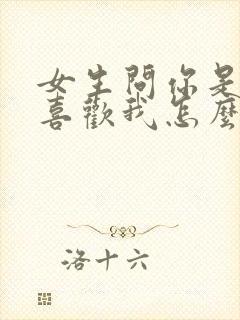 女生問你是
喜歡我怎麼
洛十六